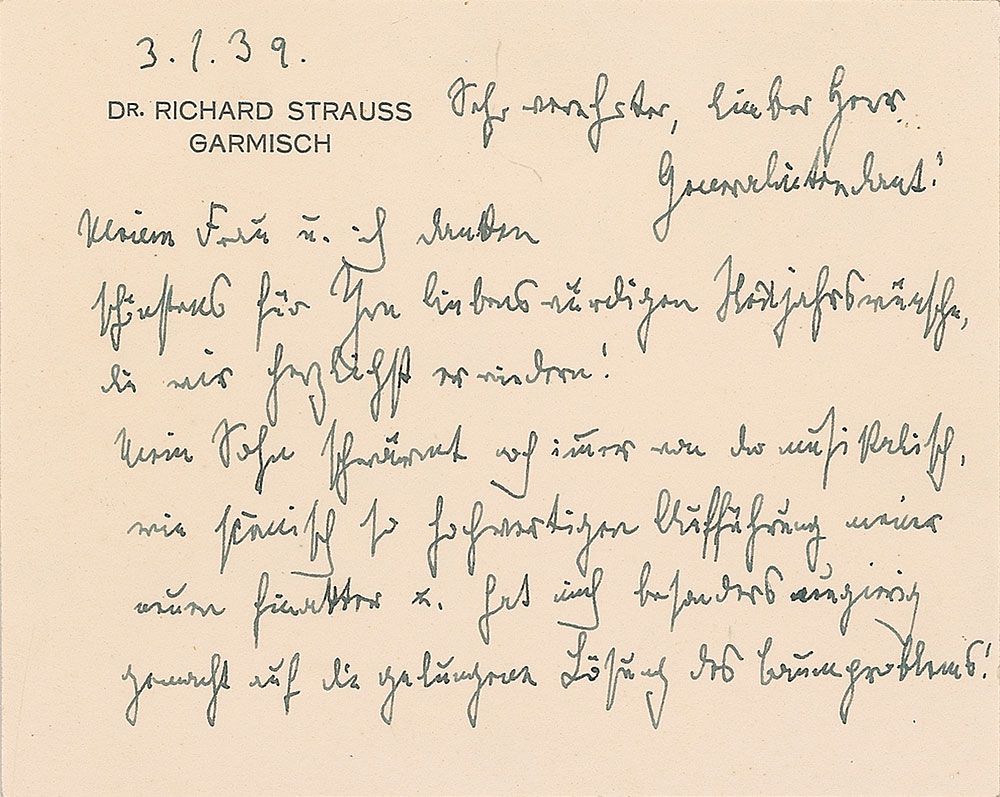 3.1.39.
DR. RICHARD STRAUSS
GARMISCH
Sehr verehrter, lieber Herr
Generalintendant!
Meine Frau u. ich danken
schönstens für Ihre liebenswürdigen Neujahrswünsche,
die wir herzlichst erwiedern!
Mein Sohn schwärmt noch immer von der musikalisch,
wie scenisch so hochwertigen Aufführung meiner
neuen Einakter u. hat mich besonders neugierig
gemacht auf die gelungene Lösung des Baumproblems!